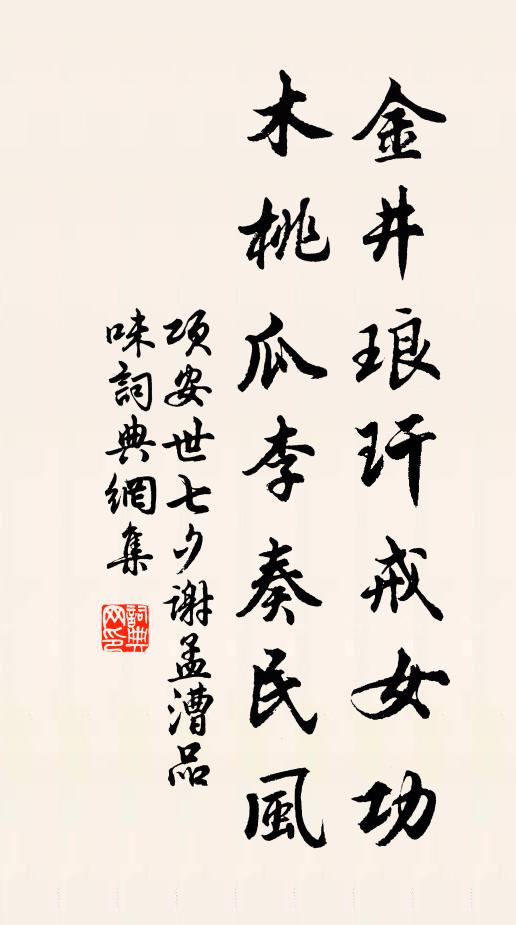 金井琅玕戒女功
木桃瓜李奏民風
項安世七夕謝孟漕品
味詞典網集
詞典
网印